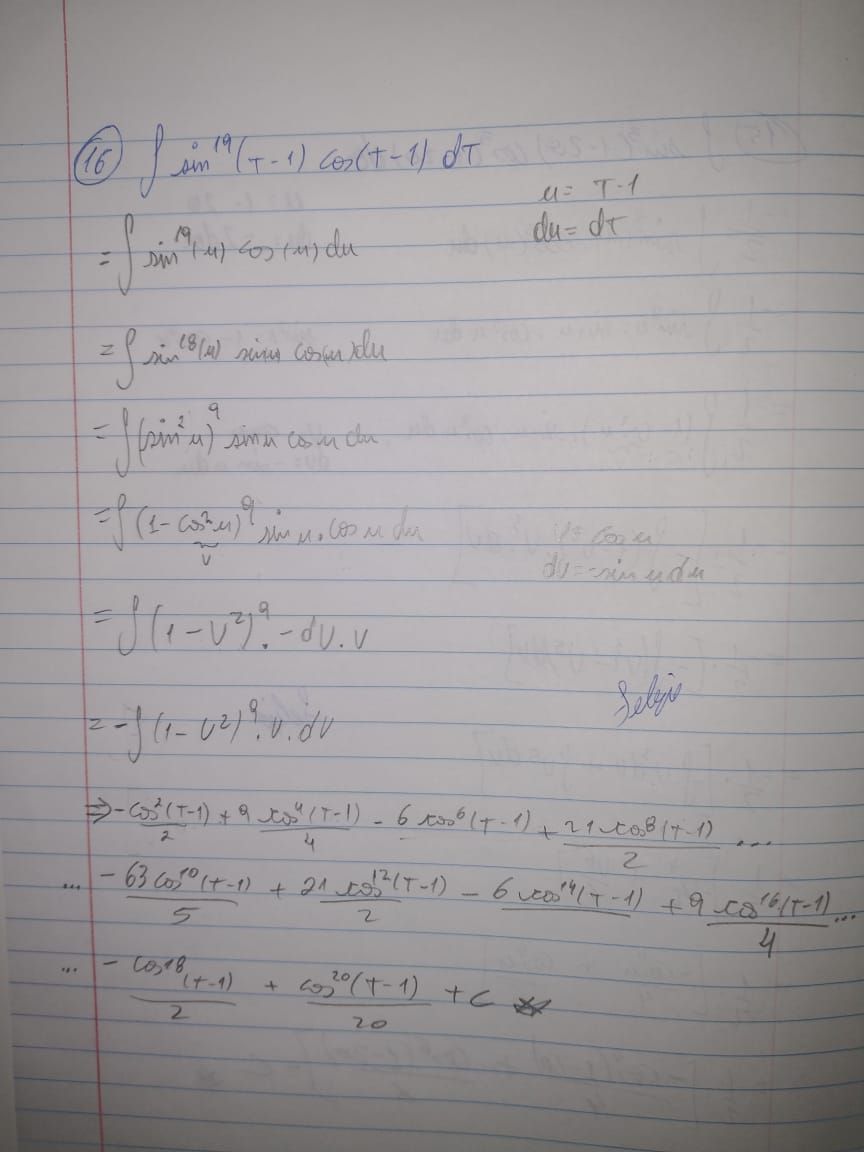 16 ∫ sin¹⁹(T-1) cos(T-1) dT
u = T-1
du = dT
= ∫ sin¹⁹(u) cos(u) du
= ∫ sin¹⁸(u) sinu cos(u) du
= ∫ (sin²u)⁹ sinu cosu du
= ∫ (1-cos²u)⁹ sinu.cosu du
v
v = cosu
dv = -sinu du
= ∫ (1-v²)⁹. -dv.v
= -∫ (1-v²)⁹.v.dv
⇒ -cos²(T-1)/2 + 9cos⁴(T-1)/4 - 6cos⁶(T-1) + 21cos⁸(T-1)/2 ...
... -63cos¹⁰(T-1)/5 + 21cos¹²(T-1)/2 - 6cos¹⁴(T-1) + 9cos¹⁶(T-1)/4 ...
... -cos¹⁸(T-1)/2 + cos²⁰(T-1)/20 + C